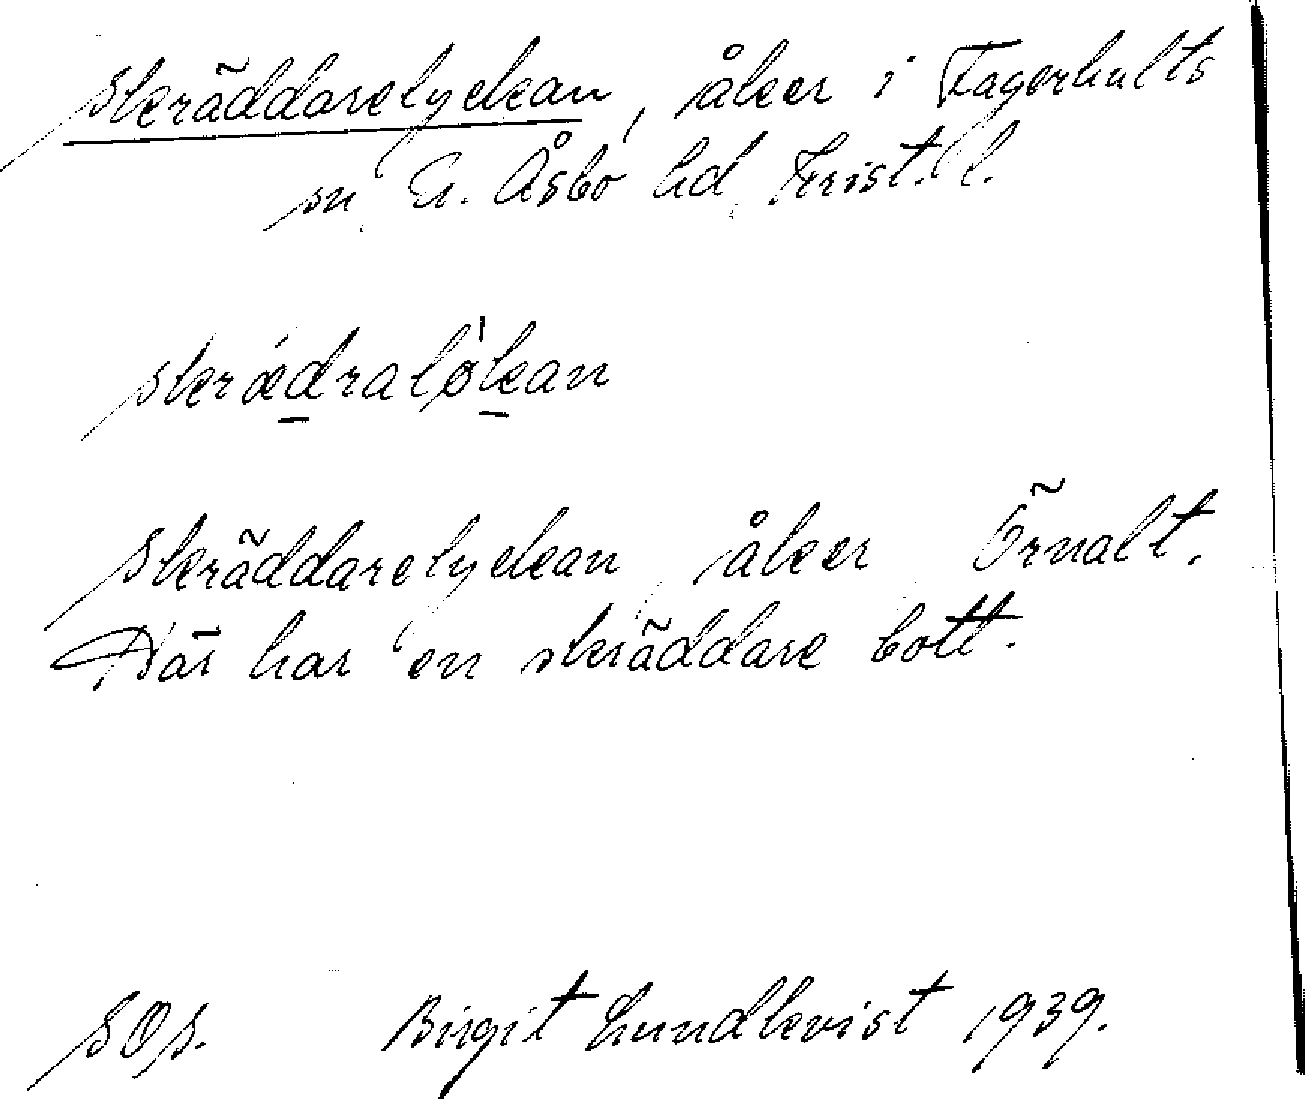 Skräddarelyckan, åker i Fagerhults
sn N. Åsbo hd Krist. l.
skræ̀dralø̀kan
Skräddarelyckan, åker Örnalt.
Där har en skräddare bott.
SOs. Birgit Lundkvist 1939.